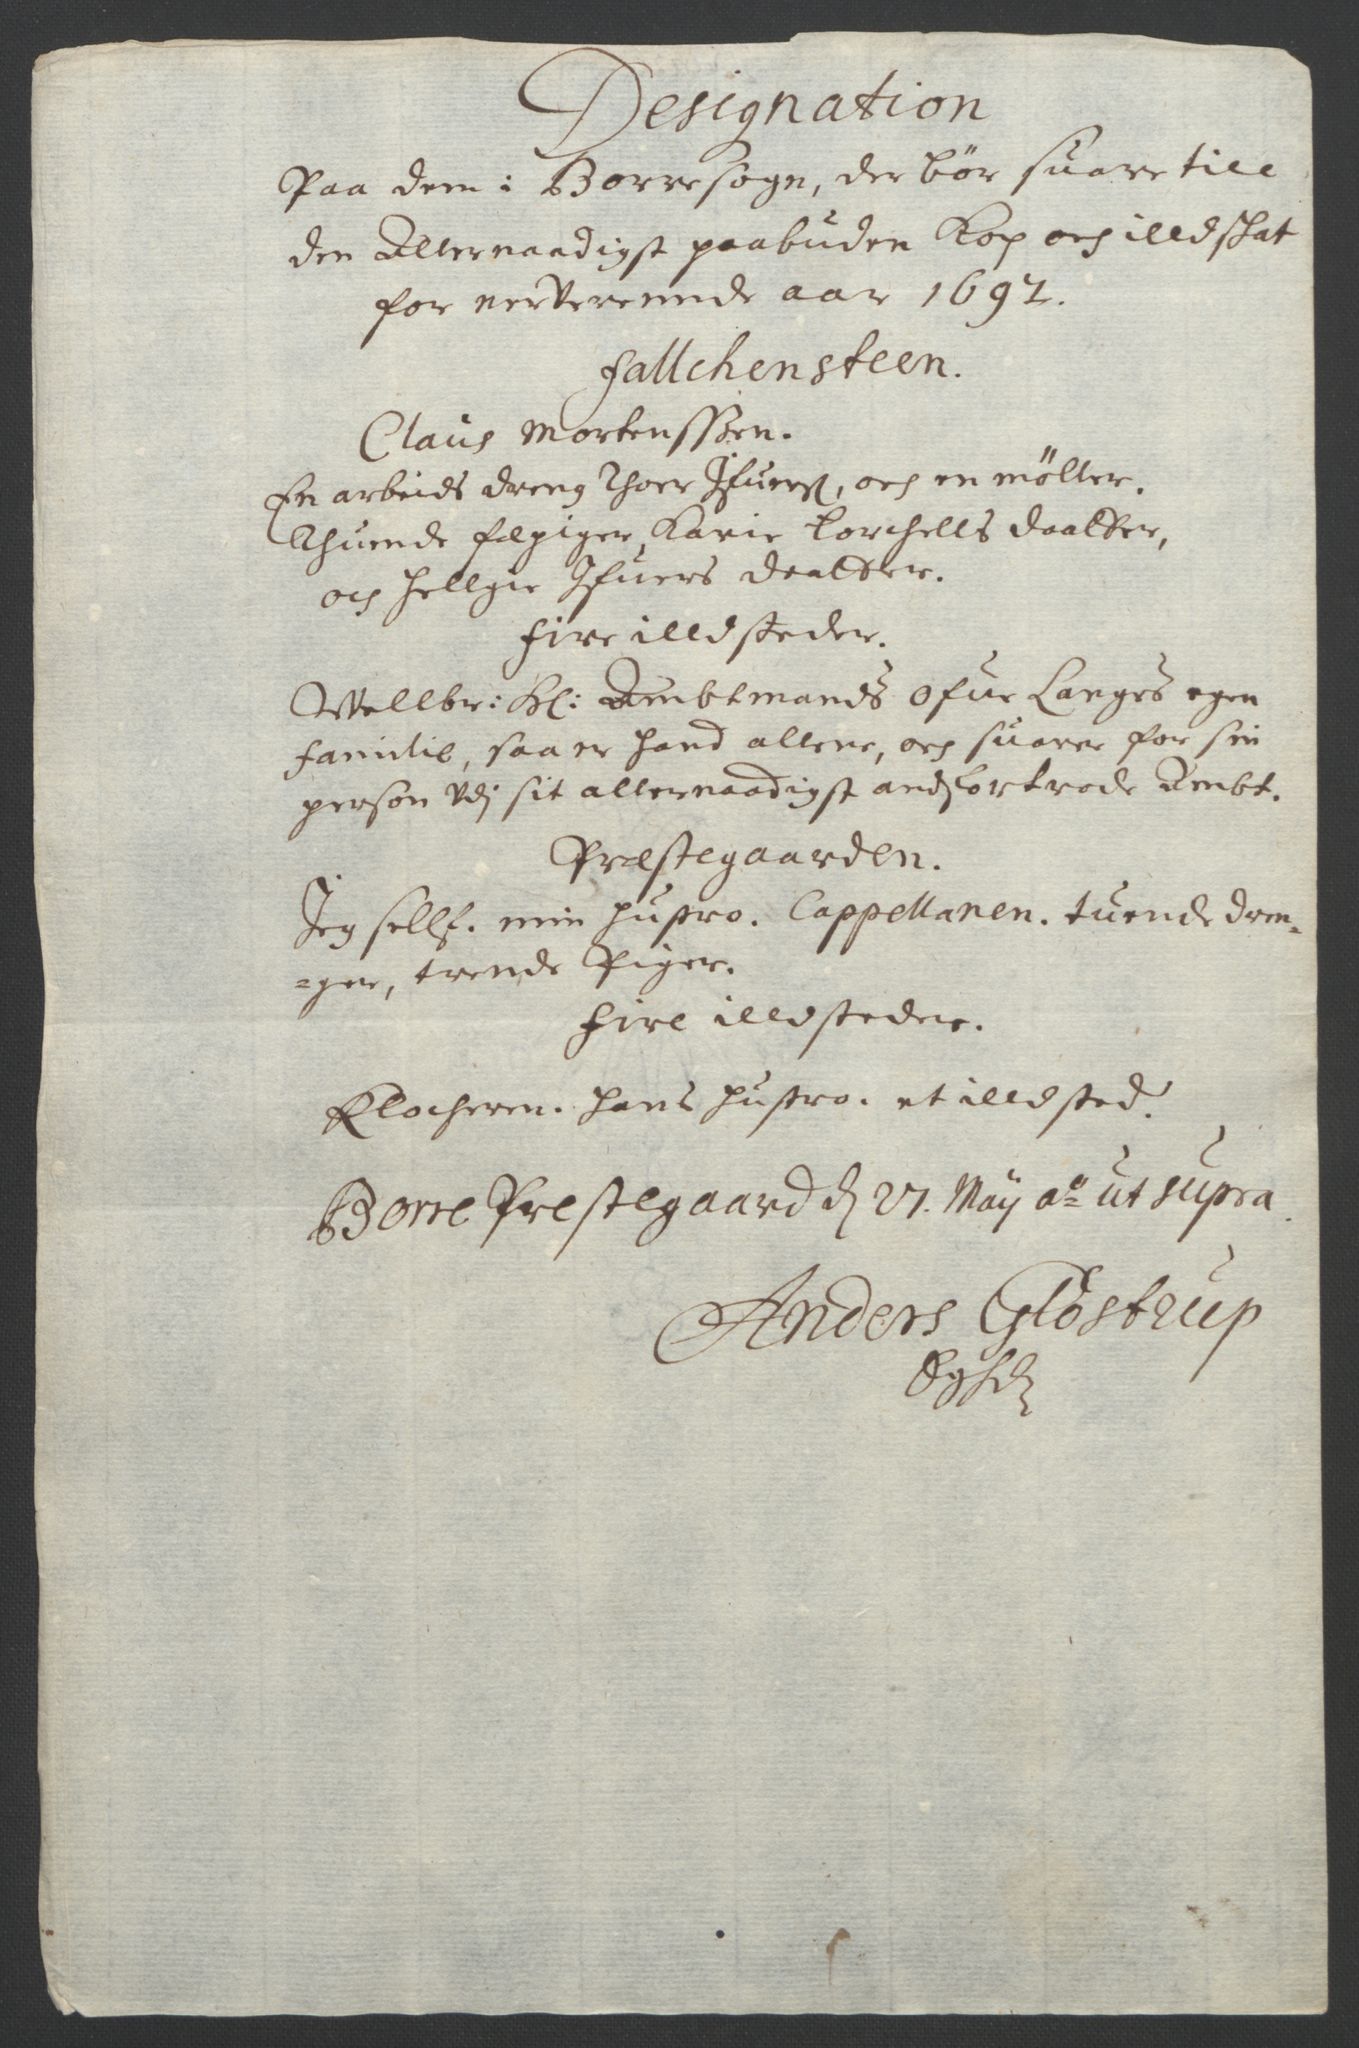 Designation
Paa dem i Borresogn, der bör suare till
den Allernaadigst paabuden Kop och illdschat
for nerverende aar 1692.
Fallchensteen.
Claus Mortenssßen.
En arbeids dreng Thoer Ifuerß, och en möller.
Thuende Fæpiger, Karie Torchells daatter,
och Hellgie Ifuers daatter.
Fire illdsteder.
Wellbr: Hl: Ambtmands Ofue Langes egen
familie, saa er hand allene, och suarer for sin
person vdj sit allernaadigst andfortrode Ambt.
Præstegaarden.
Jeg sellf. min hustro. Cappellanen. tuende dren=
=ger, trende Piger.
Fire illdsteder.
Klocheren. hans hustro. et illdsted.
Borre Prestegaard d 27. Maij ao ut supra.
Anders Glostrup